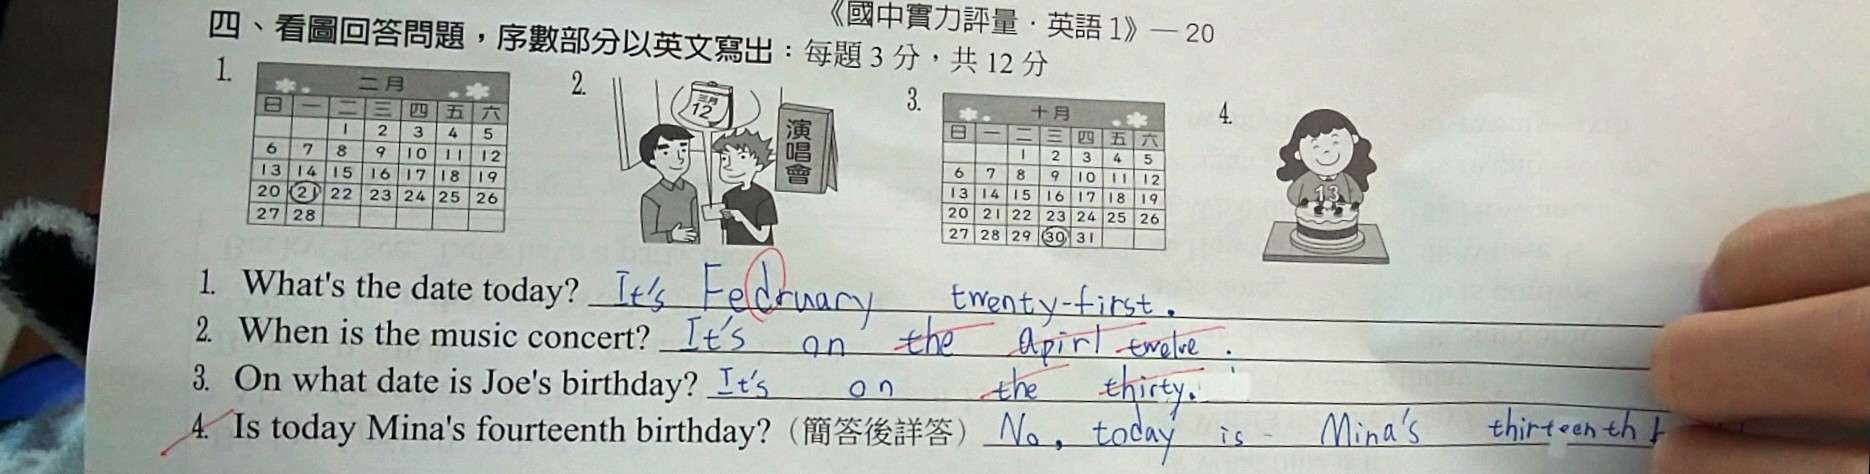 《國中實力評量．英語1》— 20
四、看圖回答問題，序數部分以英文寫出：每題 3 分，共 12 分
1.
二月
日 一 二 三 四 五 六
1 2 3 4 5
6 7 8 9 10 11 12
13 14 15 16 17 18 19
20 21 22 23 24 25 26
27 28
2.
三月
12
演唱會
3.
十月
日 一 二 三 四 五 六
1 2 3 4 5
6 7 8 9 10 11 12
13 14 15 16 17 18 19
20 21 22 23 24 25 26
27 28 29 30 31
4.
13
1. What's the date today? It's Fedruary twenty-first.
2. When is the music concert? It's on the apirl twelve.
3. On what date is Joe's birthday? It's on the thirty.
4. Is today Mina's fourteenth birthday?（簡答後詳答）No, today is Mina's thirteenth